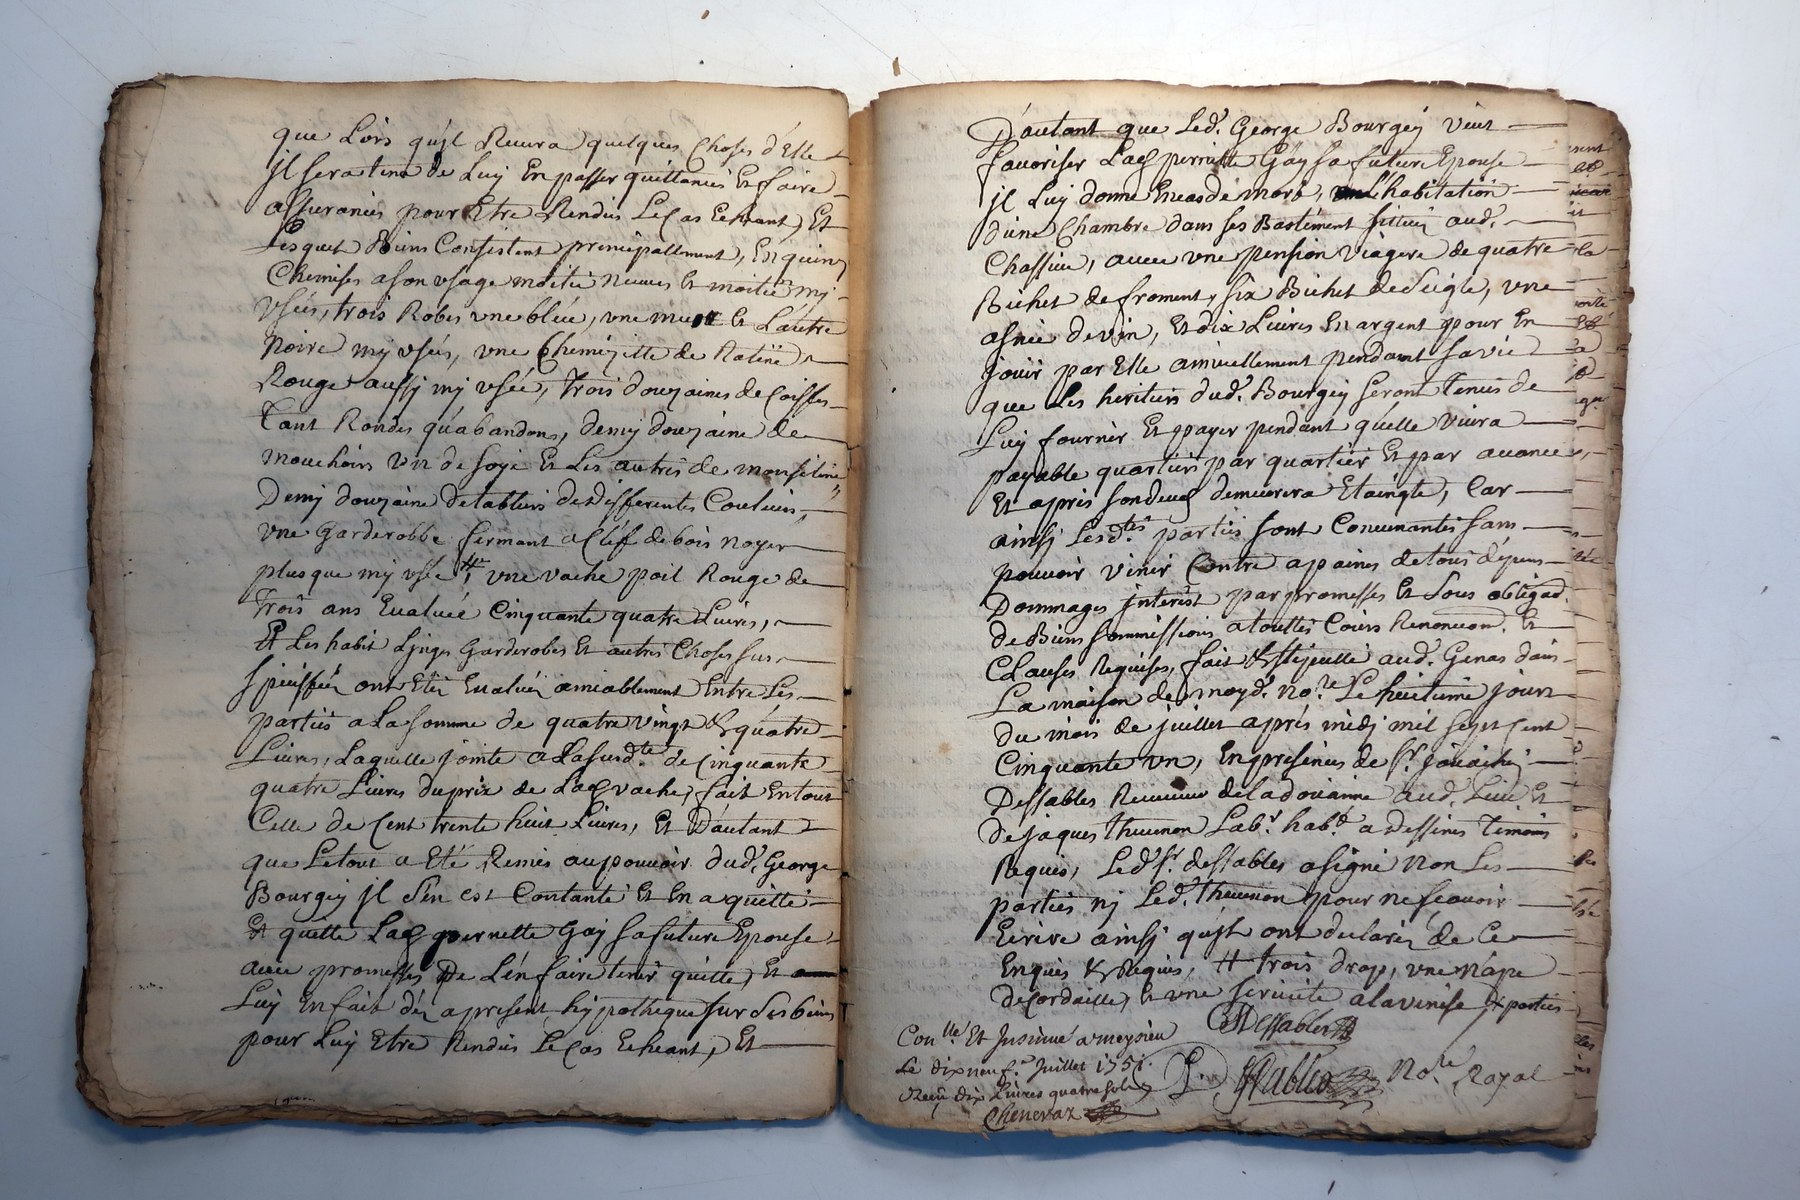 que Lors qu'jl Recevra quelques Choses d'Elle
jl sera tenu de Luy En passer quittances Et faire
assurances pour Etre Rendus Le Cas Echeant, Et
Lesquels Biens Consistent principallement, En quinze
Chemises a son usage moitié neuves Et moitié my
Usées, trois Robes une bleüe, une Et Lautre
noire my usées, une Chemizette de Ratine
Rouge aussy my usée, trois douzaines de Coiffes
Tant Rondes qu'abandons, demy douzaine de
mouchoirs un de soye Et Les autres de mousseline
Demy douzaine de tabliers de differentes Couleurs,
une Garderobbe fermant a Cléf de bois noyer
plus que my usée #, une vache poil Rouge de
trois ans Evaluée Cinquante quatre Livres,
Et Les habit Linges Garderobes Et autres Choses sus
speciffiées ont Eté Evaluées amiablement Entre Les
parties a La somme de quatre vingt & quatre
Livres, Laquelle jointe a La susd.te de Cinquante
quatre Livres du prix de Lad vache, fait En tout
Celle de Cent trente huit Livres, Et D'autant
que Le tout a Eté Remis au pouvoir dud. George
Bourgey jl s'en est Contanté Et En a quitté
Et quitte Lad pernette Gay sa future Epouse
avec promesses De L'en faire tenir quitte, Et
Luy En fait dés a present hypotheque sur ses biens
pour Luy Etre Rendus Le Cas Echeant, Et
D'autant que Led. George Bourgey veut
favoriser Lad perrette Gay sa future Epouse
jl Luy donne En cas de mort, L'habitation
d'une Chambre dans ses Bastiment situés aud.
Chassieu, avec une pension viagere de quatre
Bichet de froment, six Bichet de seigle, une
asnée de vin, Et dix Livres En argent pour En
jouir par Elle annuellement pendant sa vie
que Les heritiers dud. Bourgey seront tenus de
Luy fournir Et payer pendant qu'elle vivra
payable quartier par quartier Et par avance,
Et aprés son deced demeurera Etaingte, Car
ainsy Lesd.tes parties sont Convenantes sans
pouvoir venir Contre a paines de tous dépens
Dommages jnterest par promesses Et sous obligad.
de Biens sommissions a touttes Cours Renonciom. Et
Clauses Requises, fait & stipullé aud. Genas dans
La maison de moyd. No.re Le huitieme jour
du mois de juillet aprés midy mil sept Cent
Cinquante un, En presences de Sr.
Dessables Receveur de la doüanne aud. Lieu, Et
de jaques thevenon Lab.r hab.t a Dessines temoins
Requis, Led. Sr. dessables a signé non Les
parties ny Led. thevenon pour ne sçavoir
Ecrire ainsy qu'jl ont declaré de Ce
Enquis & Requis, # trois drap, une nape
de Cordaille, Et une serviete a la venise
Dessables
Con.lle Et Insinué a meysieu
Le dix neuf.e Juillet 1751.
Reçu dix Livres quatre sols
Chenevaz
No.re Royal